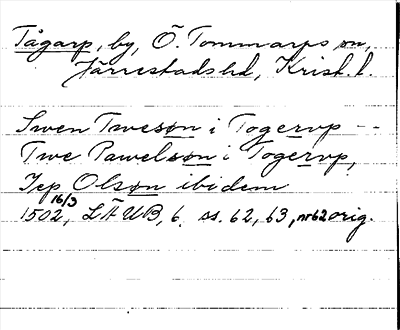 Tågarp, by, Ö. Tommarps sn,
Järrestads hd, Krist. l.
Swen Twesøn i Togerup --
Twe Pawelsøn i Togerup,
Jep Olsøn ibidem
16/3
1502, LÄUB, 6, ss. 62, 63, nr 62 orig.